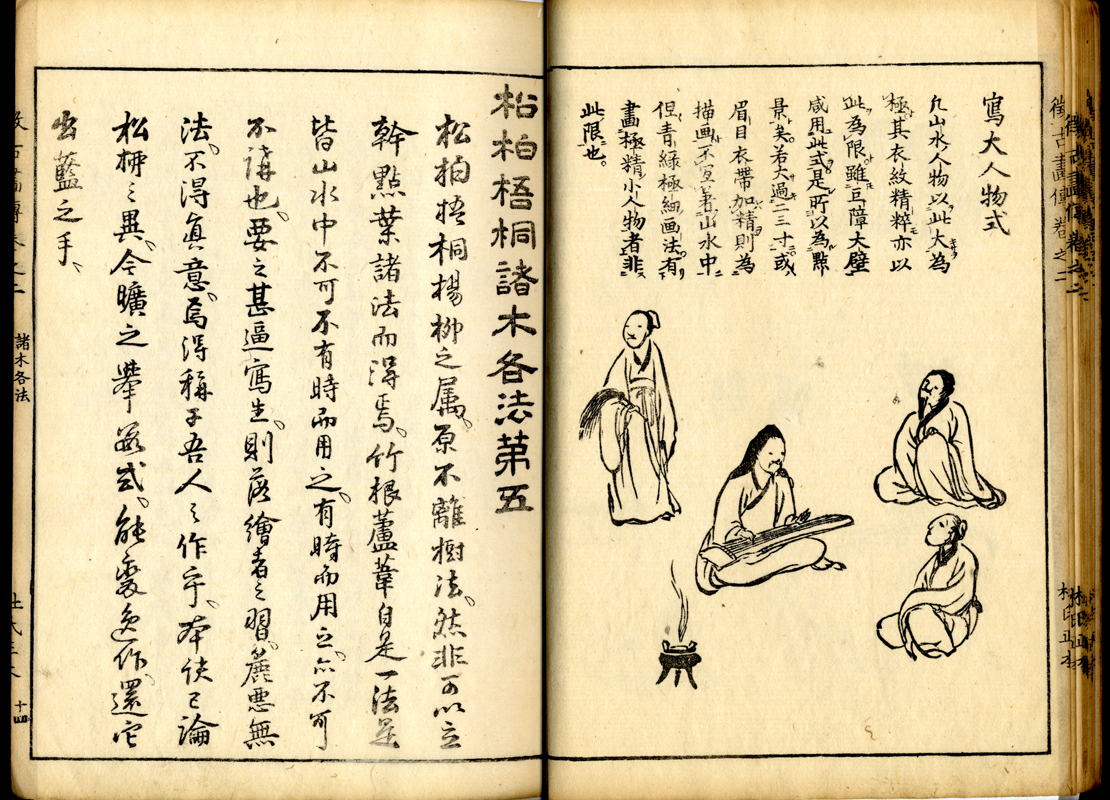 寫大人物式
凡山水人物以此大為
極其衣紋精粹亦以
此為限雖巨障大壁
咸用此式是所以為點
景矣若大過二三寸或
眉目衣帶加精則為
描画不冝著山水中
但青綠極細画法有
畫極精小人物者非
此限也
松柏梧桐諸木各法第五
松柏梧桐楊栁之属原不離樹法然非可以立
幹點葉諸法而得焉竹根蘆葦自是一法是
皆山水中不可不有時而用之有時而用之亦不可
不講也要之甚逼寫生則落繪者之習麁悪無
法不得真意焉得稱于吾人之作乎本俠已論
松栁之異今曠之舉畧式能變逸作還它
出藍之手
諸木各法
十四